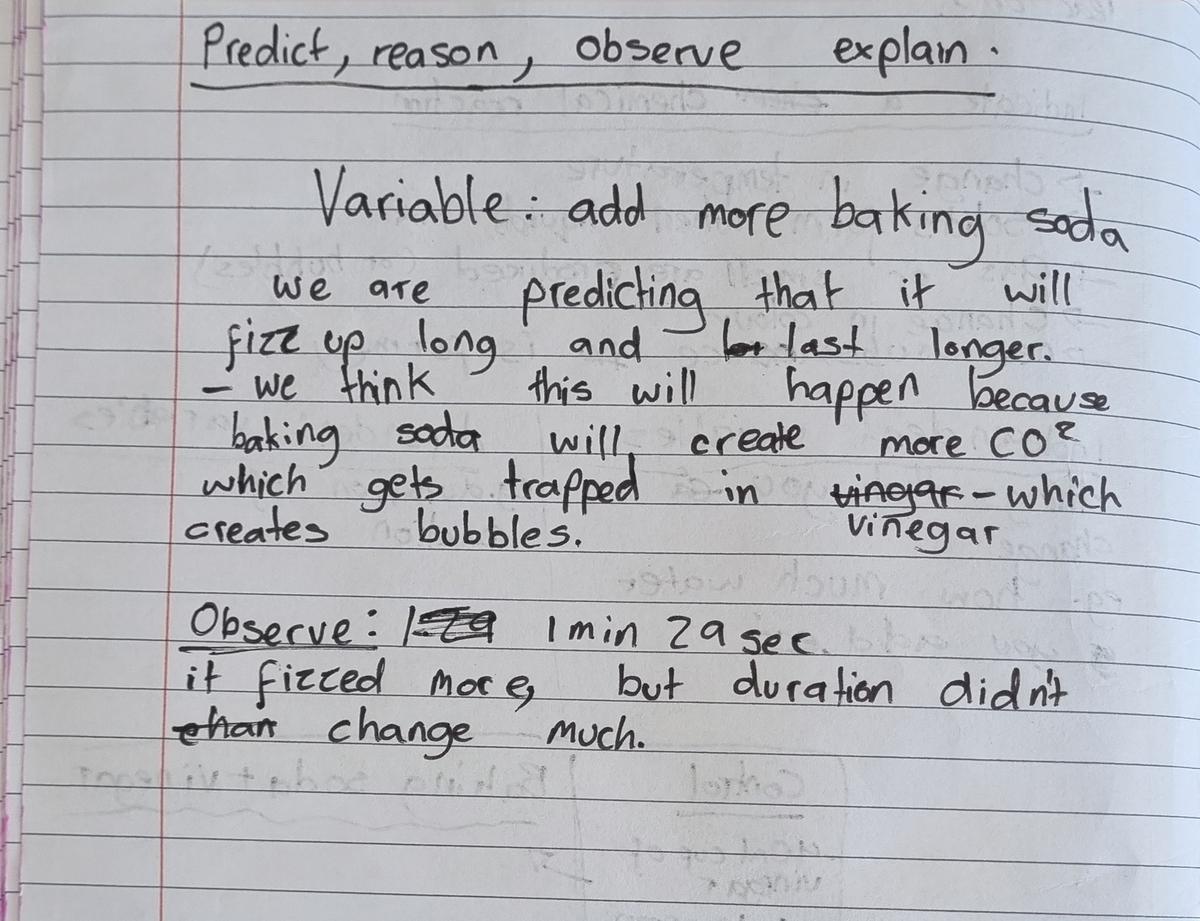 Predict, reason, observe explain.
Variable: add more baking soda
we are predicting that it will
fizz up long and last longer.
- we think this will happen because
baking soda will create more CO²
which gets trapped in vingar - which
creates bubbles. vinegar
Observe: 1 min 29 sec.
it fizzed more, but duration didn't
chan change much.
Control Baking soda + vinegar